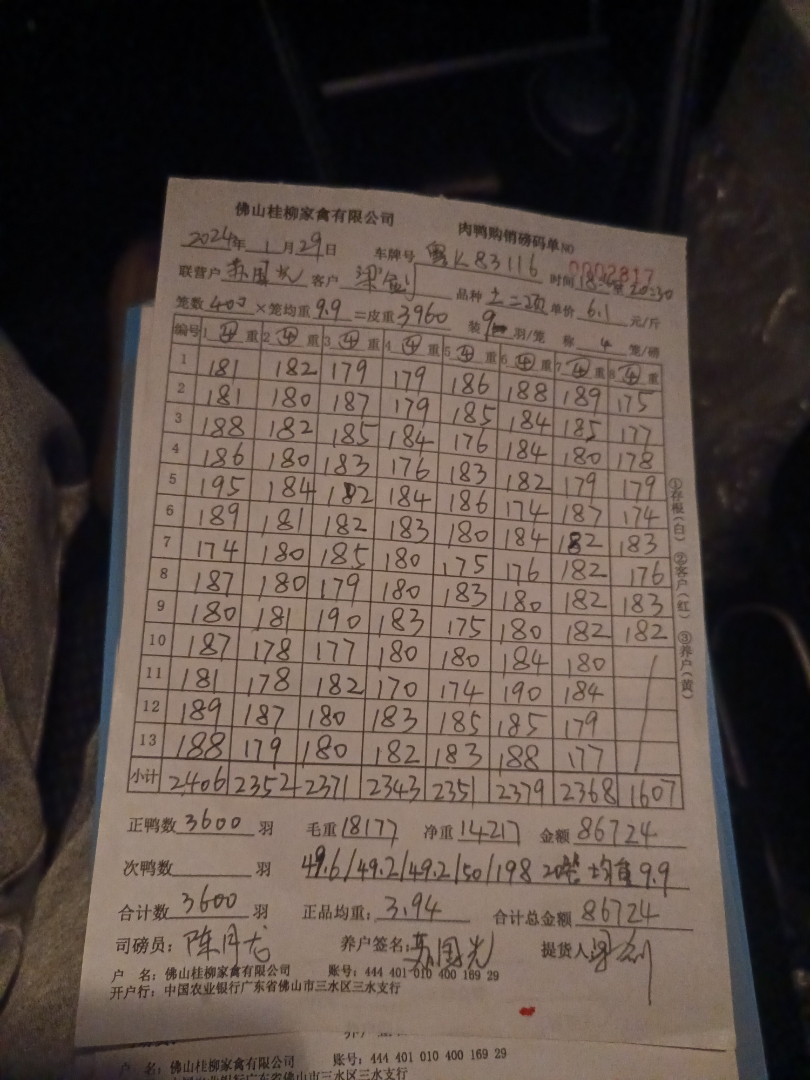 佛山桂柳家禽有限公司 肉鸭购销磅码单NO
0002817
2024年 1 月 29 日 车牌号 粤K83116 时间 18:
联营户 客户 梁 品种 土二 单价 6.1 元/斤
笼数 400 ×笼均重 9.9 =皮重 3960 装 9 羽/笼 称 4 笼/磅
编号 1 ④ 重 2 ④ 重 3 ④ 重 4 ④ 重 5 ④ 重 6 ④ 重 7 ④ 重 8 ④ 重
1 181 182 179 179 186 188 189 175
2 181 180 187 179 185 184 185 177
3 188 182 185 184 176 184 180 178
4 186 180 183 176 183 182 179 179
5 195 184 182 184 186 174 187 174
6 189 181 182 183 180 184 182 183
7 174 180 185 180 175 176 182 176
8 187 180 179 180 183 180 182 183
9 180 181 190 183 175 180 182 182
10 187 178 177 180 180 184 180
11 181 178 182 170 174 190 184
12 189 187 180 183 185 185 179
13 188 179 180 182 183 188 177
小计 2406 2352 2371 2343 2351 2379 2368 1607
正鸭数 3600 羽 毛重 18177 净重 14217 金额 86724
次鸭数 羽 49.6/49.2/49.2/50/198 20笼 均重9.9
合计数 3600 羽 正品均重: 3.94 合计总金额 86724
司磅员: 陈月龙 养户签名: 提货人
户 名: 佛山桂柳家禽有限公司 账号: 444 401 010 400 169 29
开户行: 中国农业银行广东省佛山市三水区三水支行
①存根(白) ②客户(红) ③养户(黄)
户 名: 佛山桂柳家禽有限公司 账号: 444 401 010 400 169 29